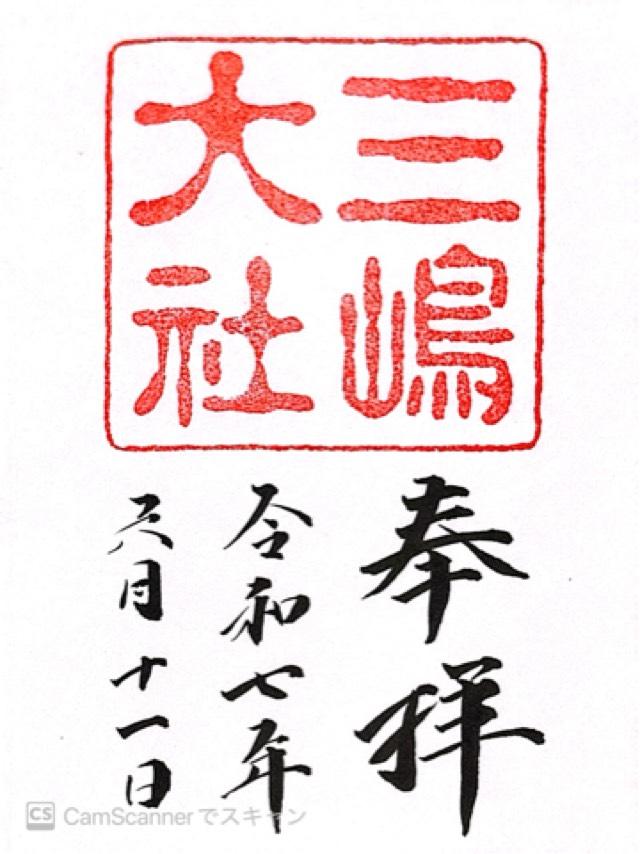 三嶋
大社
奉拝
令和七年
六月十一日
CS CamScannerでスキャン